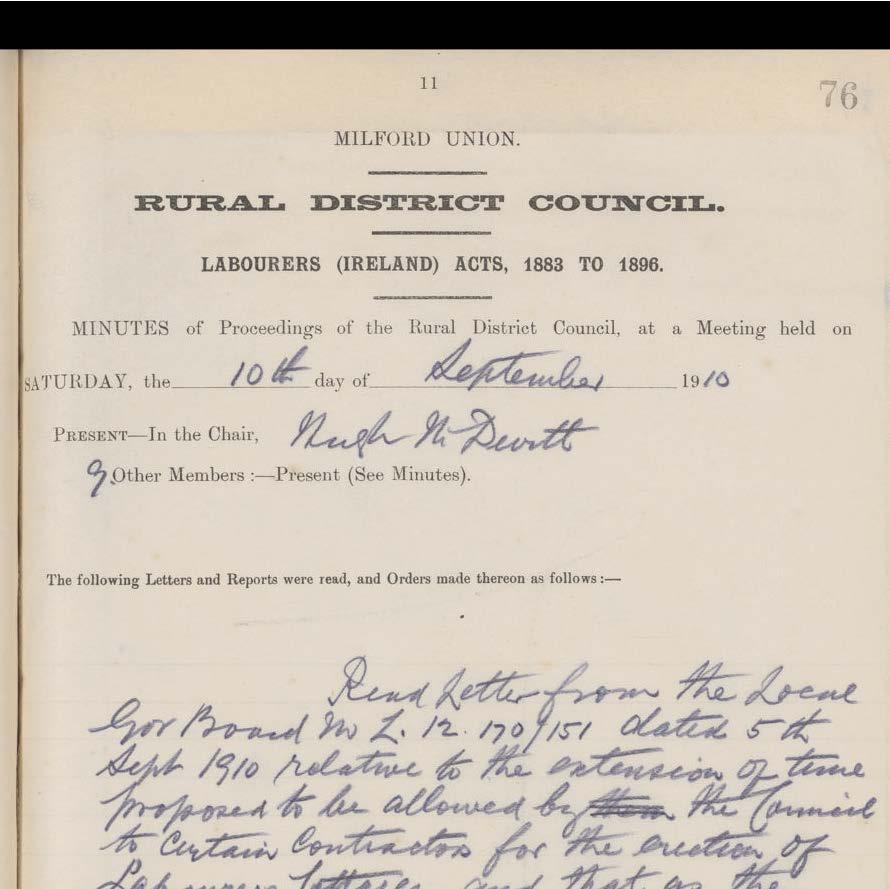 11
76
MILFORD UNION.
RURAL DISTRICT COUNCIL.
LABOURERS (IRELAND) ACTS, 1883 TO 1896.
MINUTES of Proceedings of the Rural District Council, at a Meeting held on
SATURDAY, the 10th day of September 1910
PRESENT—In the Chair, Hugh McDevitt
Other Members :—Present (See Minutes).
The following Letters and Reports were read, and Orders made thereon as follows:—
Read Letter from the Local
Gov Board No L. 12. 170/151 dated 5th
Sept 1910 relative to the extension of time
proposed to be allowed by the Council
to certain Contractors for the erection of
Labourers Cottages and that as the